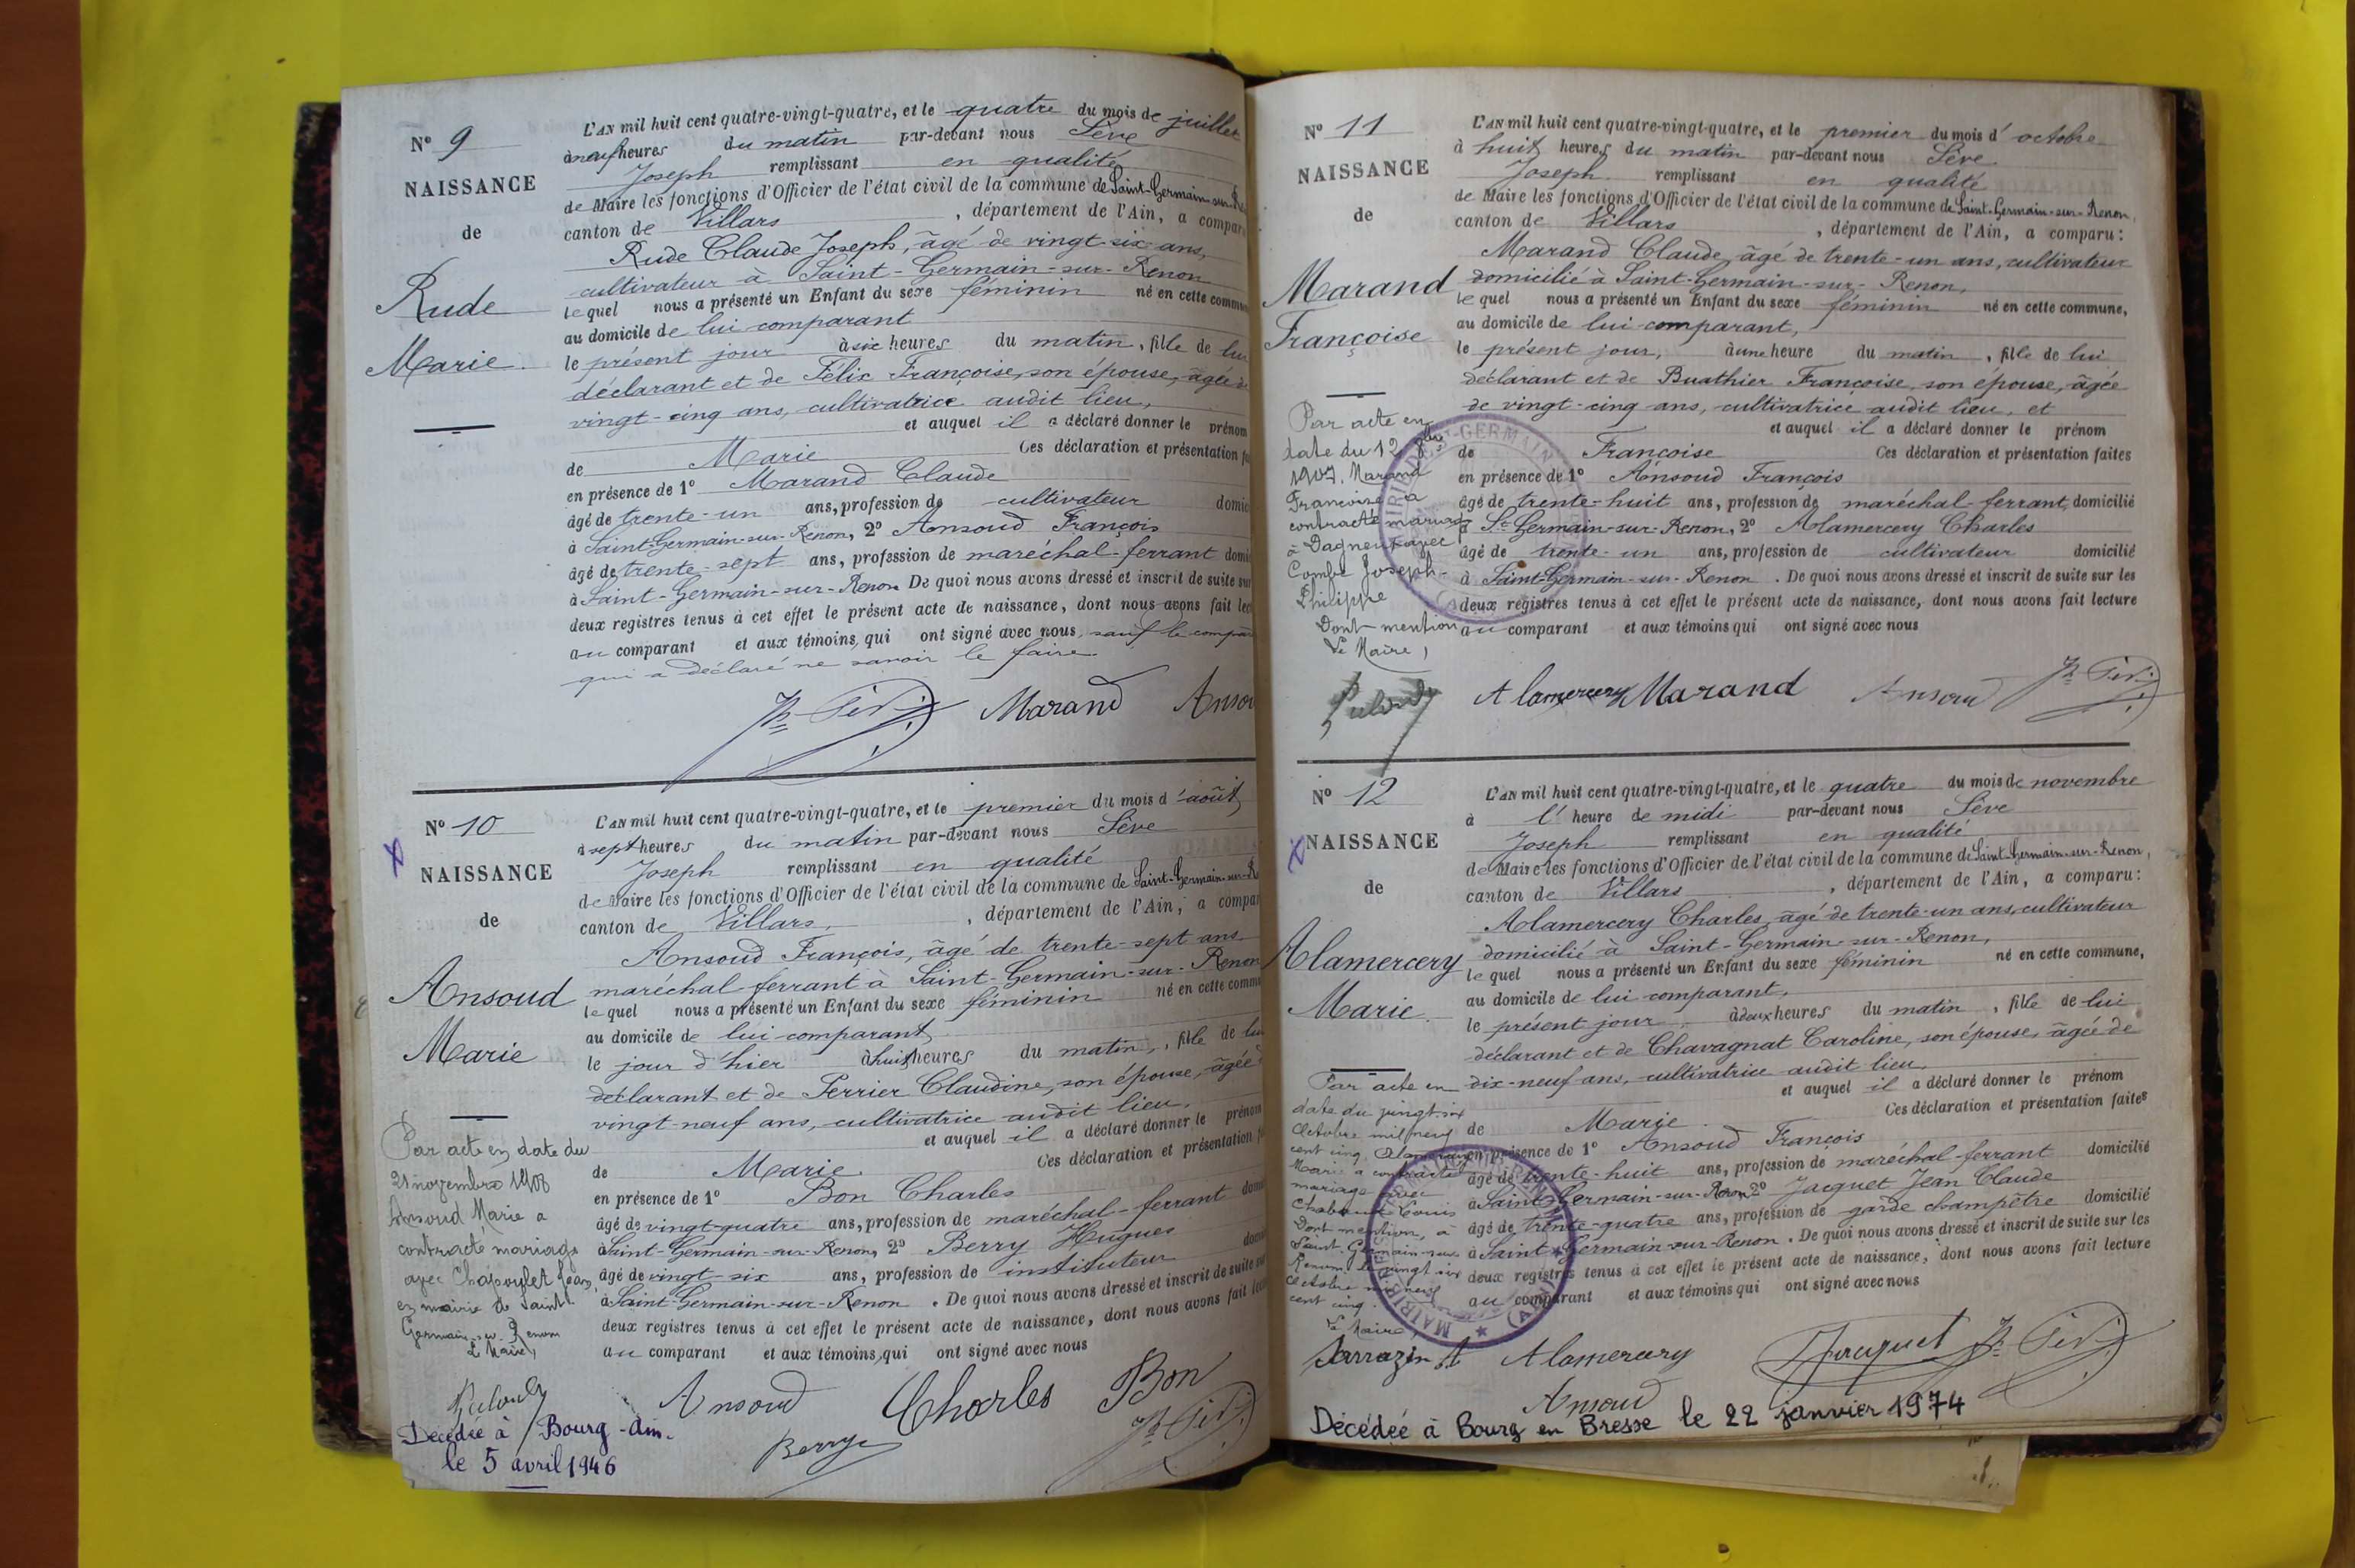 N° 9
NAISSANCE
de
Rude
Marie.
L'AN mil huit cent quatre-vingt-quatre, et le quatre du mois de juillet
à neuf heures du matin par-devant nous Sève
Joseph remplissant en qualité
de Maire les fonctions d'Officier de l'état civil de la commune de Saint-Germain-sur-Re
canton de Villars, département de l'Ain, a compar
Rude Claude Joseph, âgé de vingt-six ans,
cultivateur à Saint-Germain-sur-Renon
lequel nous a présenté un Enfant du sexe féminin né en cette commun
au domicile de lui comparant
le présent jour à six heures du matin, fille de lui
déclarant et de Félix Françoise, son épouse, âgée de
vingt-cinq ans, cultivatrice audit lieu,
et auquel il a déclaré donner le prénom
de Marie Ces déclaration et présentation fa
en présence de 1° Marand Claude
âgé de trente-un ans, profession de cultivateur domic
à Saint-Germain-sur-Renon, 2° Ansoud François
âgé de trente-sept ans, profession de maréchal-ferrant domi
à Saint-Germain-sur-Renon De quoi nous avons dressé et inscrit de suite sur
deux registres tenus à cet effet le présent acte de naissance, dont nous avons fait lec
au comparant et aux témoins, qui ont signé avec nous, sauf le compar
qui a déclaré ne savoir le faire.
Marand Ansou
N° 10
NAISSANCE
de
Ansoud
Marie
L'AN mil huit cent quatre-vingt-quatre, et le premier du mois d'août,
à sept heures du matin par-devant nous Sève
Joseph remplissant en qualité
de Maire les fonctions d'Officier de l'état civil de la commune de Saint-Germain-sur-Re
canton de Villars, département de l'Ain, a compar
Ansoud François, âgé de trente-sept ans
maréchal-ferrant à Saint-Germain-sur-Renon
lequel nous a présenté un Enfant du sexe féminin né en cette commu
au domicile de lui comparant,
le jour d'hier à huit heures du matin, fille de lui
déclarant et de Perrier Claudine, son épouse, âgée
vingt-neuf ans, cultivatrice audit lieu,
et auquel il a déclaré donner le prénom
de Marie. Ces déclaration et présentation fa
en présence de 1° Bon Charles
âgé de vingt-quatre ans, profession de maréchal-ferrant domi
à Saint-Germain-sur-Renon, 2° Berry Hugues
âgé de vingt-six ans, profession de instituteur domi
à Saint-Germain-sur-Renon. De quoi nous avons dressé et inscrit de suite sur
deux registres tenus à cet effet le présent acte de naissance, dont nous avons fait lec
au comparant et aux témoins, qui ont signé avec nous
Par acte en date du
21 novembre 1908
Ansoud Marie a
contracté mariage
avec Chapoulet Jean,
en mairie de Saint-
Germain-sur-Renom
Le Maire,
Ansoud Charles Bon
Berry
Décédée à Bourg-Ain.
le 5 avril 1946
N° 11
NAISSANCE
de
Marand
Françoise
L'AN mil huit cent quatre-vingt-quatre, et le premier du mois d'octobre
à huit heures du matin par-devant nous Sève
Joseph remplissant en qualité
de Maire les fonctions d'Officier de l'état civil de la commune de Saint-Germain-sur-Renon,
canton de Villars, département de l'Ain, a comparu:
Marand Claude, âgé de trente-un ans, cultivateur
domicilié à Saint-Germain-sur-Renon,
lequel nous a présenté un Enfant du sexe féminin né en cette commune,
au domicile de lui comparant,
le présent jour, à une heure du matin, fille de lui
déclarant et de Buathier Françoise, son épouse, âgée
de vingt-cinq ans, cultivatrice audit lieu, et
et auquel il a déclaré donner le prénom
de Françoise Ces déclaration et présentation faites
en présence de 1° Ansoud François
âgé de trente-huit ans, profession de maréchal-ferrant, domicilié
à St Germain-sur-Renon, 2° Alamercery Charles
âgé de trente-un ans, profession de cultivateur domicilié
à Saint-Germain-sur-Renon. De quoi nous avons dressé et inscrit de suite sur les
deux registres tenus à cet effet le présent acte de naissance, dont nous avons fait lecture
au comparant et aux témoins qui ont signé avec nous
Par acte en
date du 12 8bre
1907, Marand
Françoise a
contracté mariage
à Dagneux avec
Combe Joseph-
Philippe
Dont mention
Le Maire,
Alamercery Marand Ansoud
N° 12
NAISSANCE
de
Alamercery
Marie.
L'AN mil huit cent quatre-vingt-quatre, et le quatre du mois de novembre
à l'heure de midi par-devant nous Sève
Joseph remplissant en qualité
de Maire les fonctions d'Officier de l'état civil de la commune de Saint-Germain-sur-Renon,
canton de Villars, département de l'Ain, a comparu:
Alamercery Charles, âgé de trente-un ans, cultivateur
domicilié à Saint-Germain-sur-Renon,
lequel nous a présenté un Enfant du sexe féminin né en cette commune,
au domicile de lui comparant,
le présent jour, à deux heures du matin, fille de lui
déclarant et de Chavagnat Caroline, son épouse, âgée de
dix-neuf ans, cultivatrice audit lieu,
et auquel il a déclaré donner le prénom
de Marie. Ces déclaration et présentation faites
en présence de 1° Ansoud François
âgé de trente-huit ans, profession de maréchal-ferrant domicilié
à Saint-Germain-sur-Renon, 2° Jacquet Jean Claude
âgé de trente-quatre ans, profession de garde champêtre domicilié
à Saint-Germain-sur-Renon. De quoi nous avons dressé et inscrit de suite sur les
deux registres tenus à cet effet le présent acte de naissance, dont nous avons fait lecture
au comparant et aux témoins qui ont signé avec nous
Par acte en
date du vingt-six
octobre mil neuf
cent cinq, Alamercery
Marie a contracté
mariage avec
Louis
Dont mention, à
Saint-Germain-sur-
Renom le vingt-six
octobre mil neuf
cent cinq.
Le Maire,
Sarrazin A Alamercery Jacquet
Ansoud
Décédée à Bourg en Bresse le 22 janvier 1974